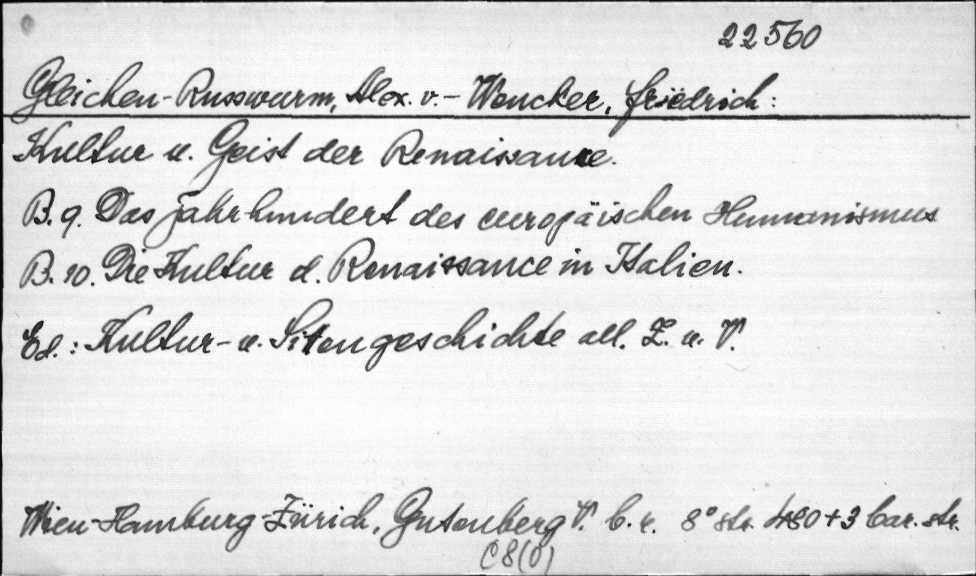 22560
Gleichen-Russwurm, Alex. v. - Wencker, Friedrich:
Kultur u. Geist der Renaissance.
B. 9. Das Jahrhundert des europäischen Humanismus
B. 10. Die Kultur d. Renaissance in Italien.
Ed.: Kultur- u. Sittengeschichte all. Z. u. V.
Wien-Hamburg-Zürich, Gutenberg V. b. r. 8° str. 480+3 bar. str.
C8(0)